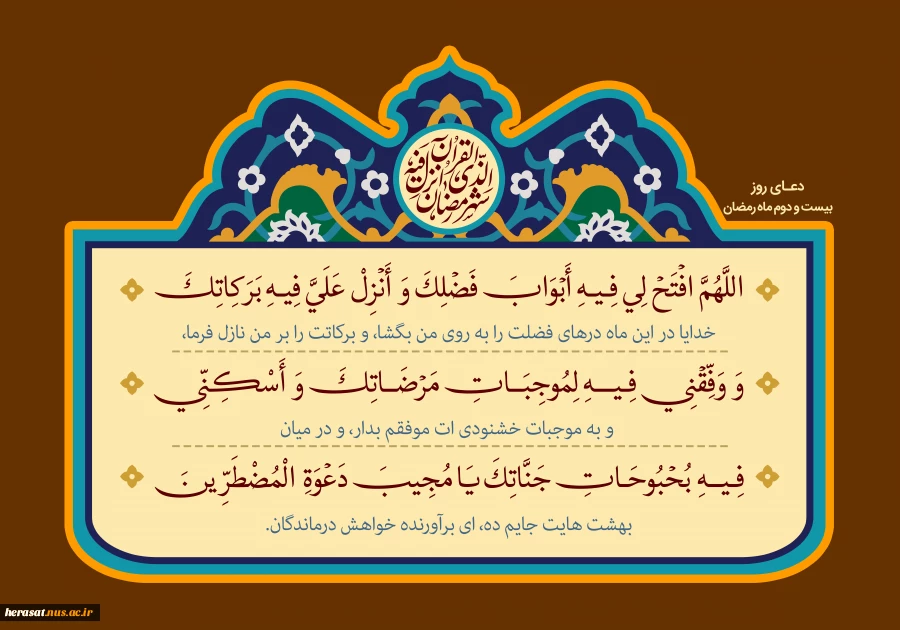 شهر رمضان الذی انزل فیه القرآن
دعـای روز
بیست و دوم ماه رمضان
اللَّهُمَّ افْتَحْ لِي فِيهِ أَبْوَابَ فَضْلِكَ وَ أَنْزِلْ عَلَيَّ فِيهِ بَرَكَاتِكَ
خدایا در این ماه درهای فضلت را به روی من بگشا، و برکاتت را بر من نازل فرما،
وَ وَفِّقْنِي فِيهِ لِمُوجِبَاتِ مَرْضَاتِكَ وَ أَسْكِنِّي
و به موجبات خشنودی ات موفقم بدار، و در میان
فِيهِ بُحْبُوحَاتِ جَنَّاتِكَ يَا مُجِيبَ دَعْوَةِ الْمُضْطَرِّينَ
بهشت هایت جایم ده، ای برآورنده خواهش درماندگان.
herasat.nus.ac.ir